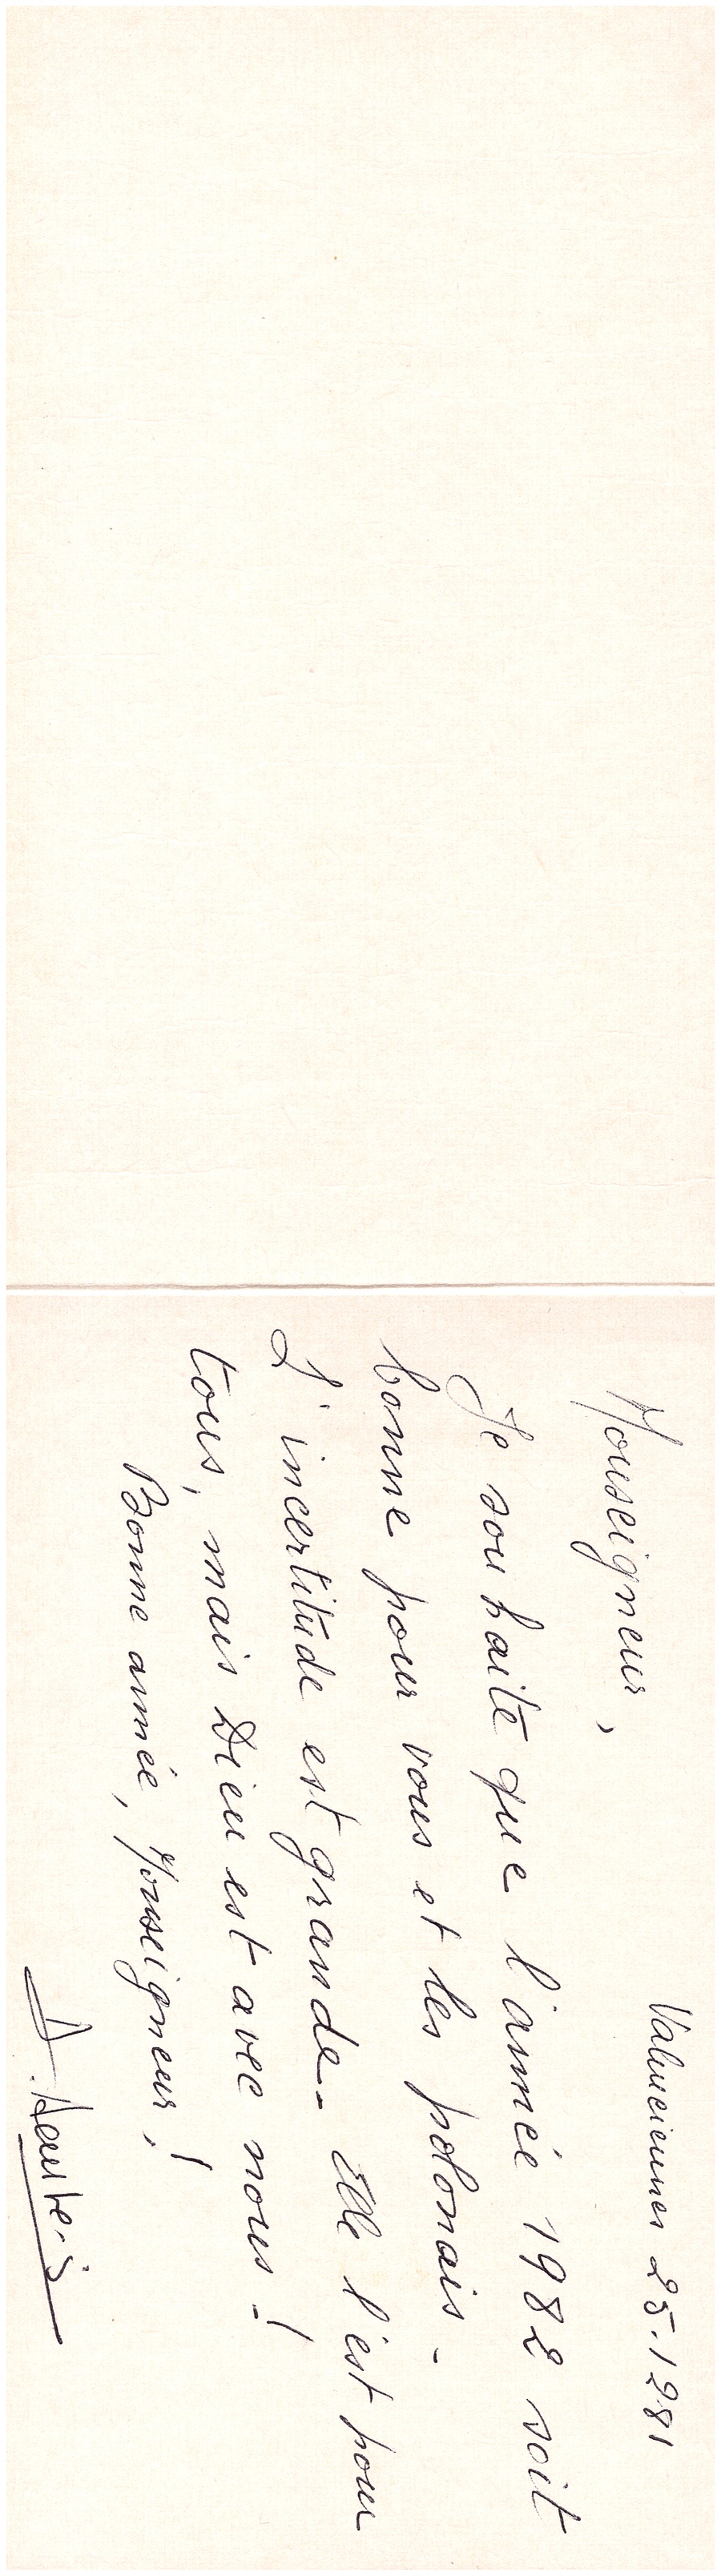 Valenciennes 25.1281
Monseigneur,
Je souhaite que l'année 1982 soit
bonne pour vous et les polonais.
L'incertitude est grande. Elle l'est pour
tous, mais Dieu est avec nous !
Bonne année, Monseigneur !